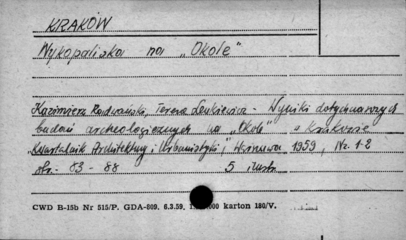 KRAKÓW
Wykopaliska na „Okole”
Kazimierz Radwański, Teresa Lenkiewicz - Wyniki dotychczasowych
badań archeologicznych na „Okole” w Krakowie
Kwartalnik Architektury i Urbanistyki, Warszawa 1959, Nr. 1-2
str. 83 - 88 5 ilustr.
CWD B-15b Nr 515/P. GDA-809. 6.3.59. 000 karton 180/V.